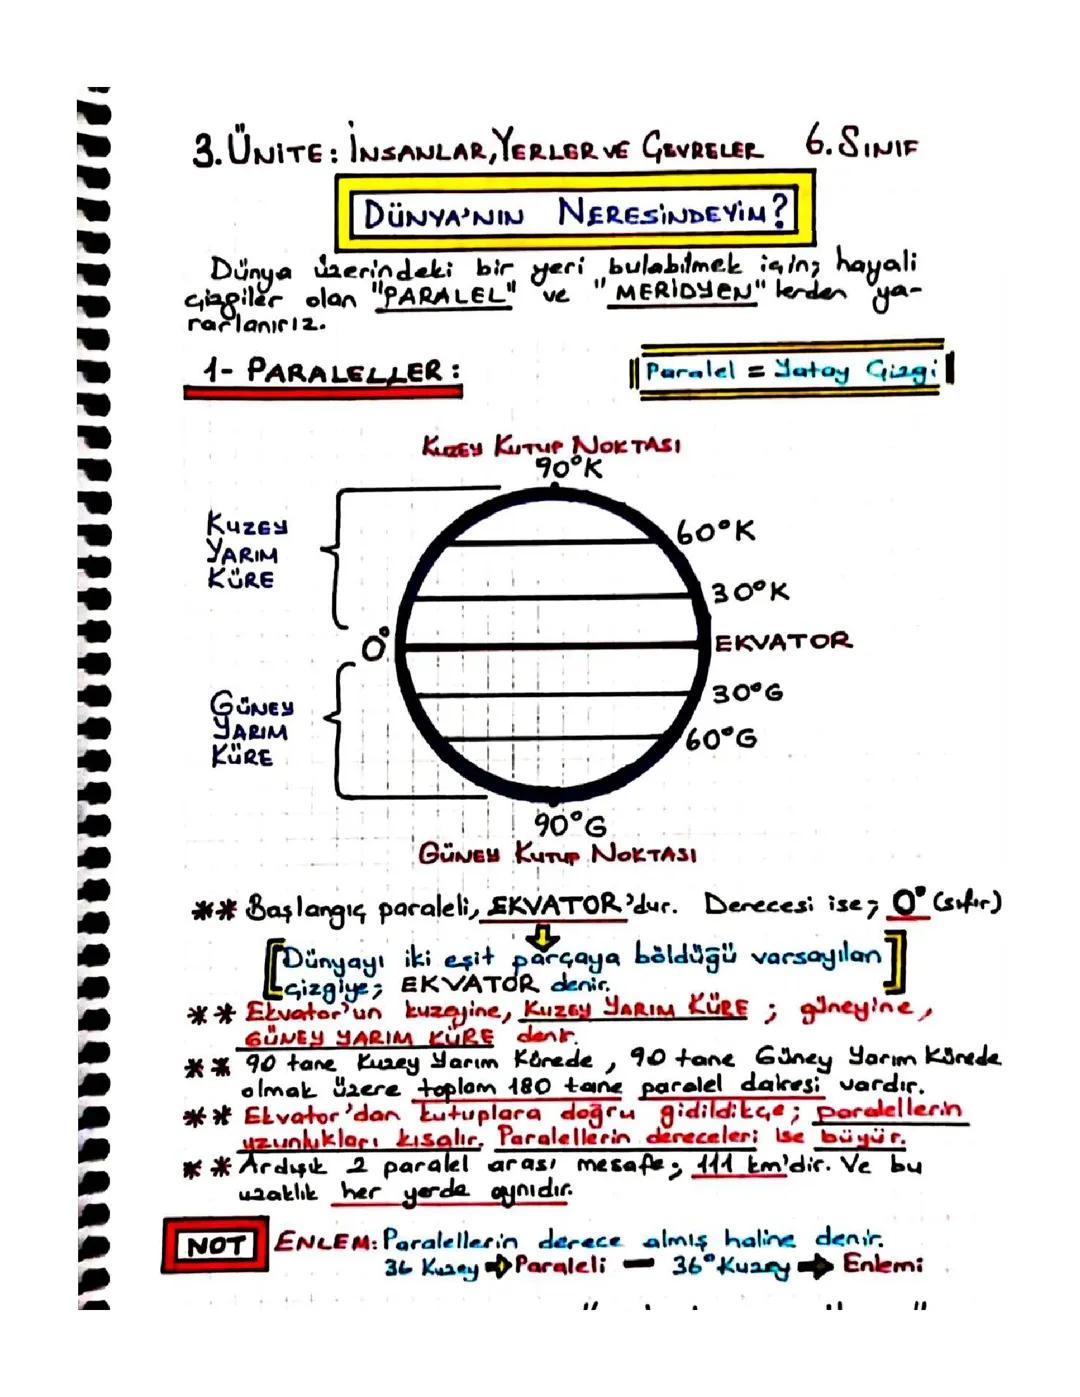 3. ÜNİTE: İNSANLAR, YERLER VE ÇEVRELER 6. SINIF
DÜNYA'NIN NERESİNDEYİM?
Dünya üzerindeki bir yeri bulabilmek için; hayali
çizgiler olan "PARALEL" ve "MERİDYEN" lerden ya-
rarlanırız.
1- PARALELLER:
Paralel = Yatay Çizgi
KUZEY KUTUP NOKTASI
90°K
KUZEY
YARIM
KÜRE
60°K
30°K
0°
EKVATOR
GÜNEY
YARIM
KÜRE
30°G
60°G
90°G
GÜNEY KUTUP NOKTASI
** Başlangıç paraleli, EKVATOR'dur. Derecesi ise; 0° (sıfır)
[Dünyayı iki eşit parçaya böldüğü varsayılan]
çizgiye; EKVATOR denir.
** Ekvator'un kuzeyine, KUZEY YARIM KÜRE ; güneyine,
GÜNEY YARIM KÜRE denir.
** 90 tane Kuzey Yarım Kürede, 90 tane Güney Yarım Kürede
olmak üzere toplam 180 tane paralel dairesi vardır.
** Ekvator'dan kutuplara doğru gidildikçe; paralellerin
uzunlukları kısalır. Paralellerin dereceleri ise büyür.
** Ardışık 2 paralel arası mesafe; 111 km'dir. Ve bu
uzaklık her yerde aynıdır.
NOT ENLEM: Paralellerin derece almış haline denir.
36 Kuzey → Paraleli — 36° Kuzey → Enlemi